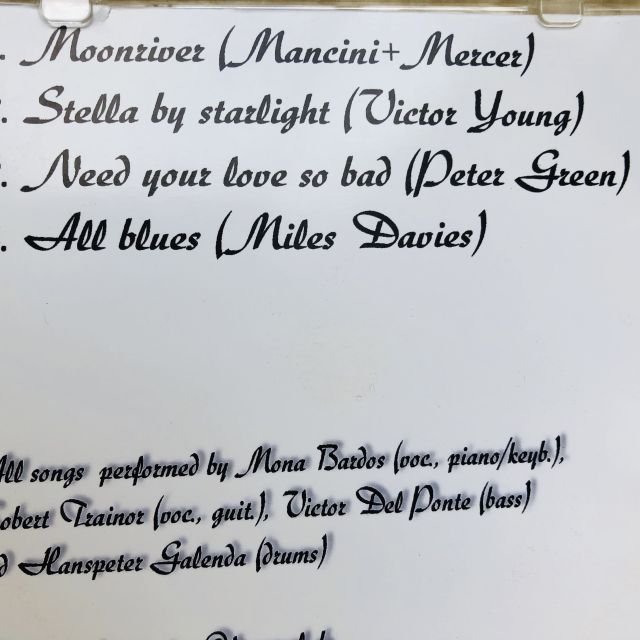 . Moonriver (Mancini+Mercer)
. Stella by starlight (Victor Young)
. Need your love so bad (Peter Green)
. All blues (Miles Davies)
All songs performed by Mona Bardos (voc., piano/keyb.),
obert Trainor (voc., guit.), Victor Del Ponte (bass)
d Hanspeter Galenda (drums)